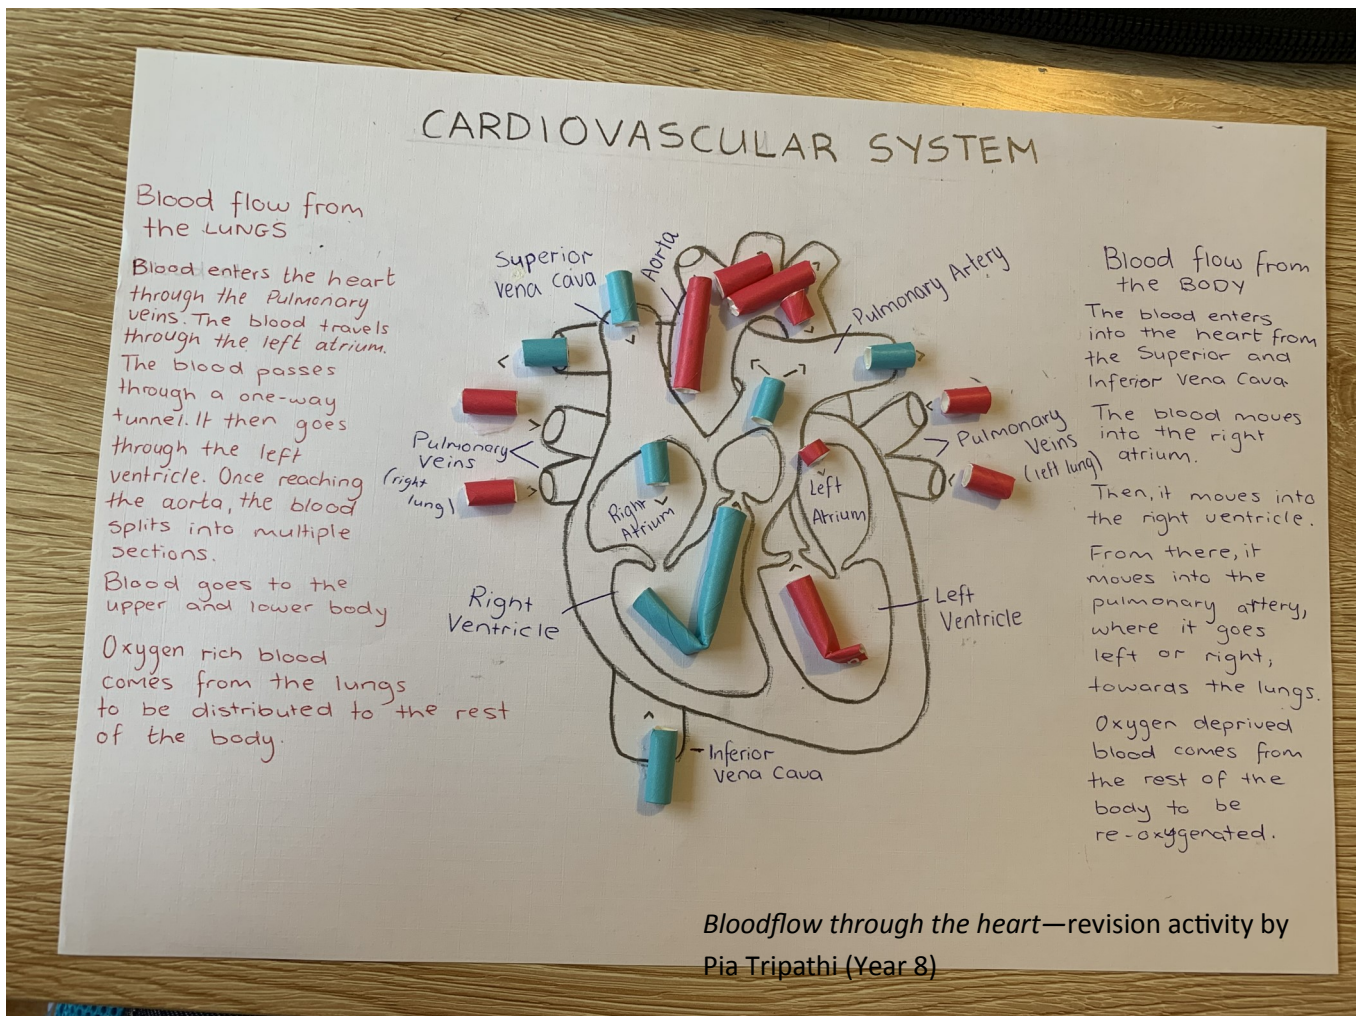 CARDIOVASCULAR SYSTEM
Blood flow from
the LUNGS
Blood enters the heart
through the Pulmonary
veins. The blood travels
through the left atrium.
The blood passes
through a one-way
tunnel. It then goes
through the left
ventricle. Once reaching
the aorta, the blood
splits into multiple
sections.
Blood goes to the
upper and lower body
Oxygen rich blood
comes from the lungs
to be distributed to the rest
of the body.
Superior
vena cava
Aorta
Pulmonary Artery
Pulmonary
Veins
(right
lung)
Pulmonary
Veins
(left lung)
Right
Atrium
Left
Atrium
Right
Ventricle
Left
Ventricle
Inferior
Vena Cava
Blood flow from
the BODY
The blood enters
into the heart from
the Superior and
Inferior Vena Cava
The blood moves
into the right
atrium.
Then, it moves into
the right ventricle.
From there, it
moves into the
pulmonary artery,
where it goes
left or right,
towards the lungs.
Oxygen deprived
blood comes from
the rest of the
body to be
re-oxygenated.
Bloodflow through the heart—revision activity by
Pia Tripathi (Year 8)